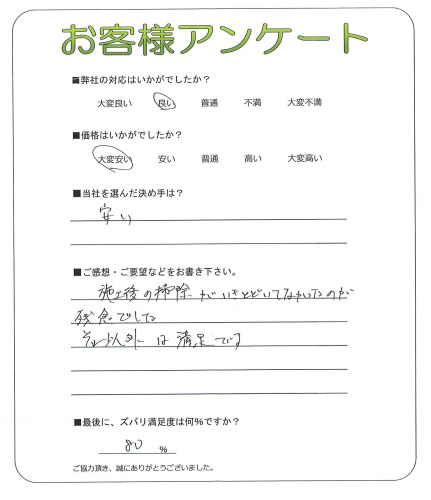 お客様アンケート
■弊社の対応はいかがでしたか？
大変良い 良い 普通 不満 大変不満
■価格はいかがでしたか？
大変安い 安い 普通 高い 大変高い
■当社を選んだ決め手は？
安い
■ご感想・ご要望などをお書き下さい。
施工後の掃除がいきとどいてなかったのが
残念でした
それ以外は満足です
■最後に、ズバリ満足度は何％ですか？
80 ％
ご協力頂き、誠にありがとうございました。